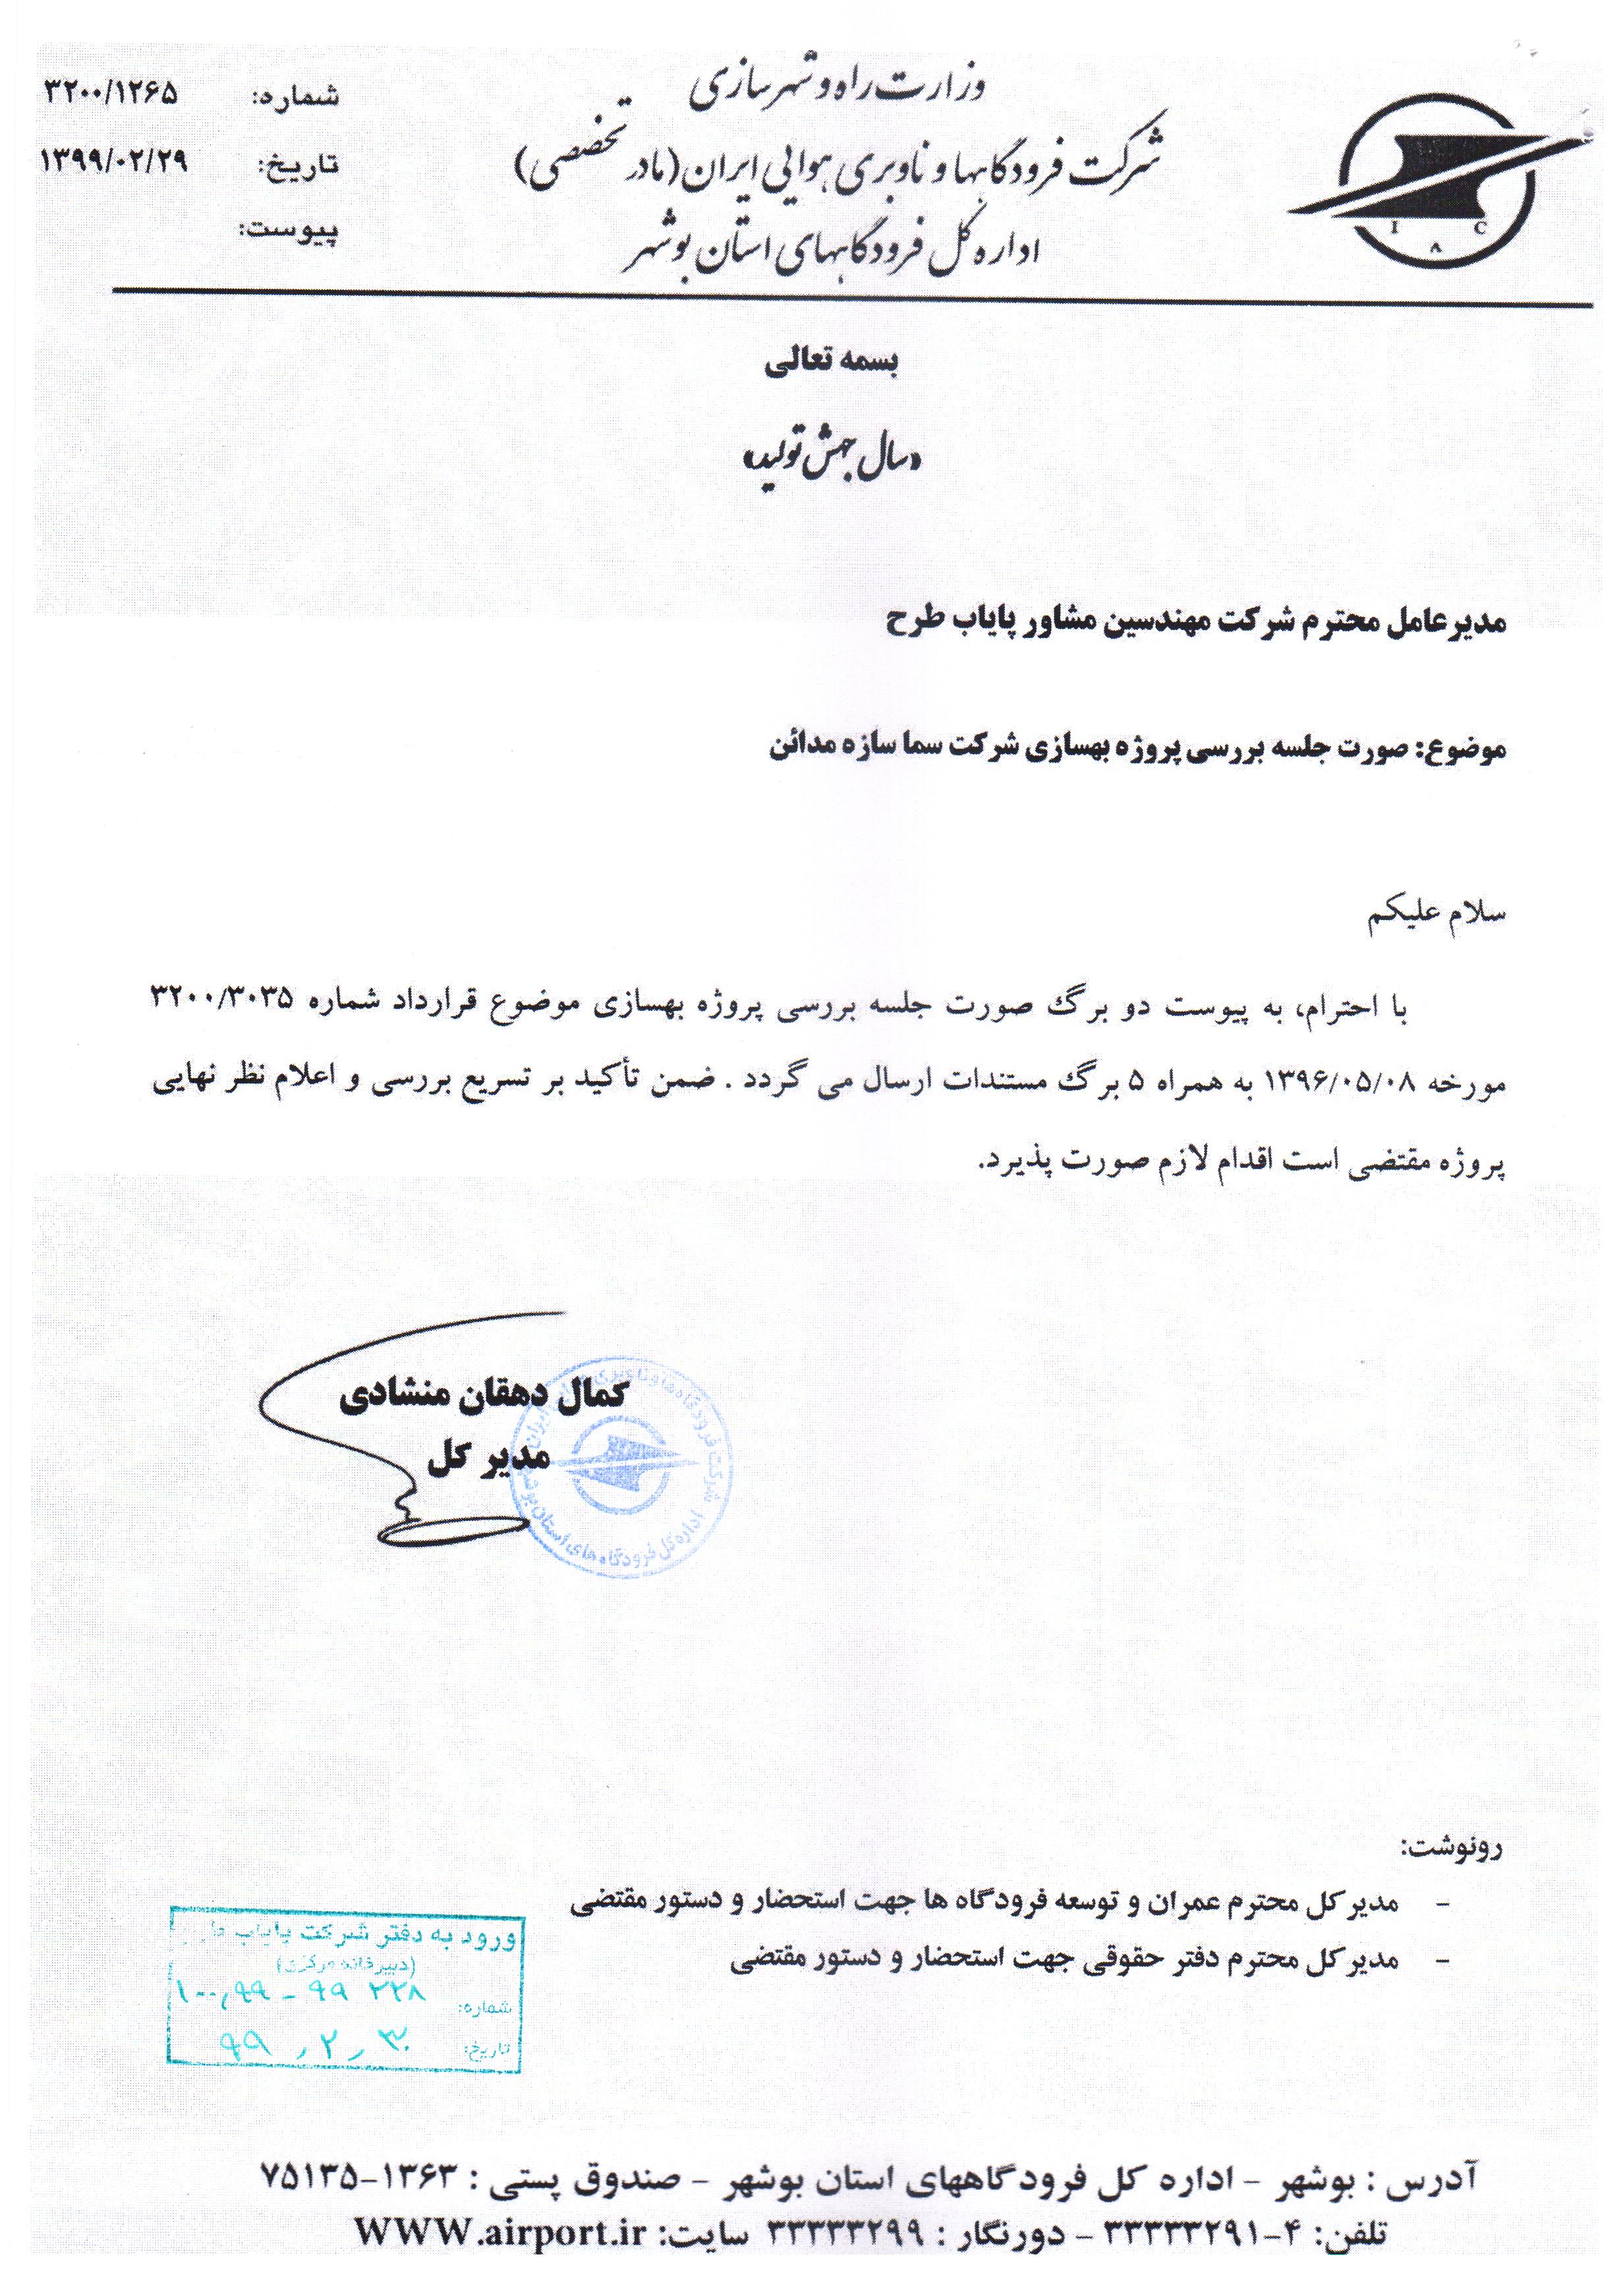 وزارت راه و شهرسازی
شرکت فرودگاهها و ناوبری هوایی ایران (مادر تخصصی)
اداره کل فرودگاههای استان بوشهر
شماره: ۳۲۰۰/۱۲۶۵
تاریخ: ۱۳۹۹/۰۲/۲۹
پیوست:
I A C
بسمه تعالی
«سال جهش تولید»
مدیرعامل محترم شرکت مهندسین مشاور پایاب طرح
موضوع: صورت جلسه بررسی پروژه بهسازی شرکت سما سازه مدائن
سلام علیکم
با احترام، به پیوست دو برگ صورت جلسه بررسی پروژه بهسازی موضوع قرارداد شماره ۳۲۰۰/۳۰۳۵
مورخه ۱۳۹۶/۰۵/۰۸ به همراه ۵ برگ مستندات ارسال می گردد . ضمن تأکید بر تسریع بررسی و اعلام نظر نهایی
پروژه مقتضی است اقدام لازم صورت پذیرد.
کمال دهقان منشادی
مدیر کل
اداره کل فرودگاه های استان بوشهر
رونوشت:
- مدیر کل محترم عمران و توسعه فرودگاه ها جهت استحضار و دستور مقتضی
- مدیر کل محترم دفتر حقوقی جهت استحضار و دستور مقتضی
ورود به دفتر شرکت پایاب
(دبیرخانه مرکزی)
شماره:
تاریخ: ۹۹/۲/۳۰
آدرس : بوشهر - اداره کل فرودگاههای استان بوشهر - صندوق پستی : ۱۳۶۳-۷۵۱۳۵
تلفن: ۴-۳۳۳۳۳۲۹۱ - دورنگار : ۳۳۳۳۳۲۹۹ سایت: WWW.airport.ir